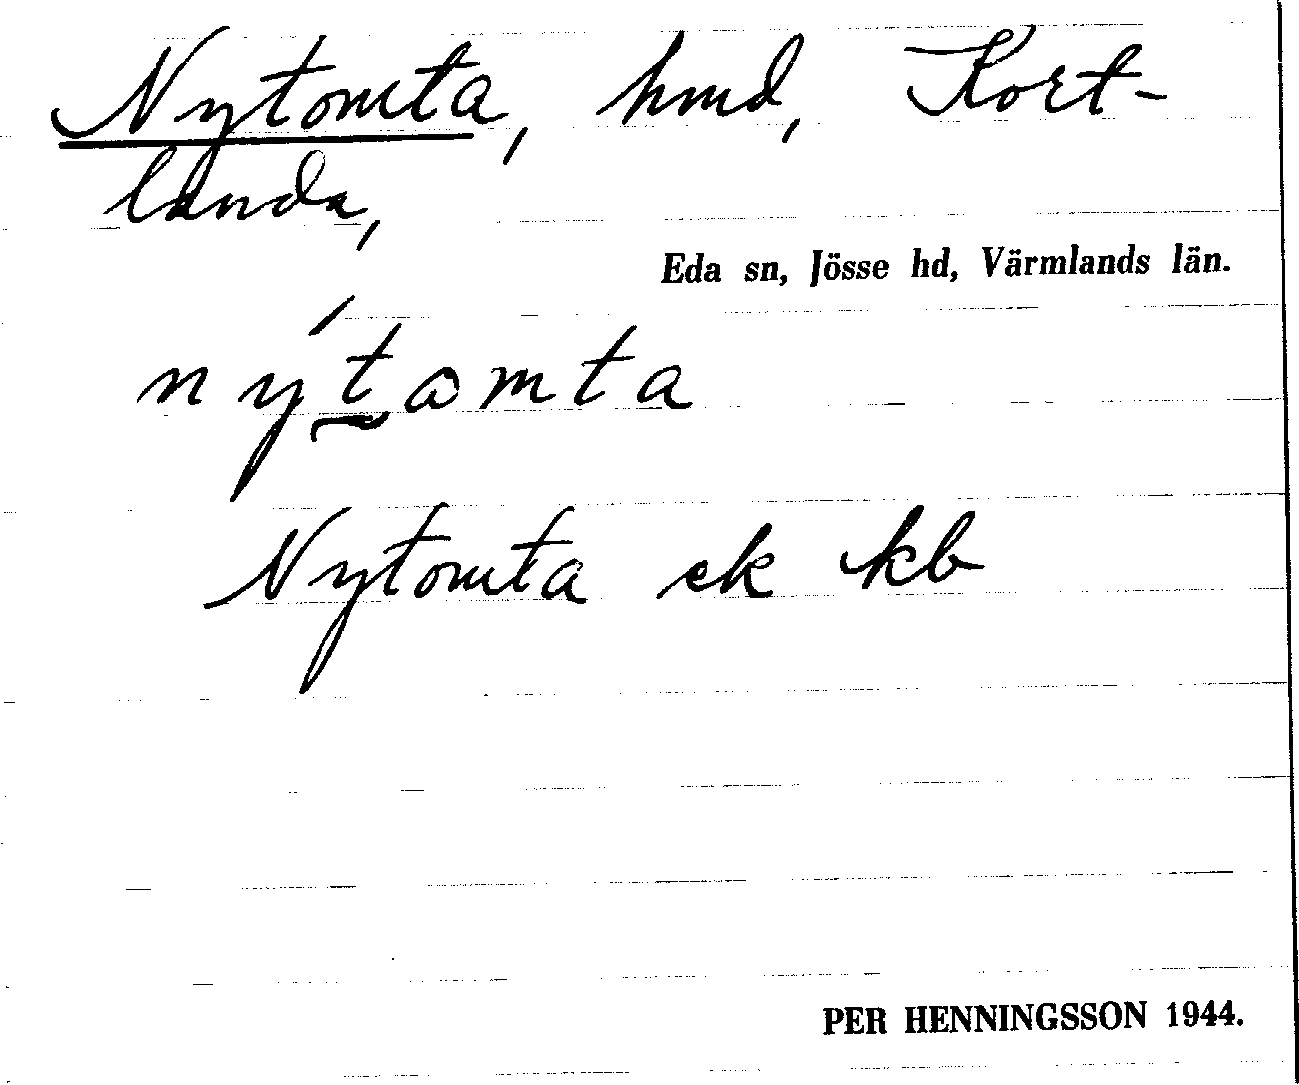 Nytomta, hmd, Kort-
landa,
Eda sn, Jösse hd, Värmlands län.
nýtomta
Nytomta ek kb
PER HENNINGSSON 1944.